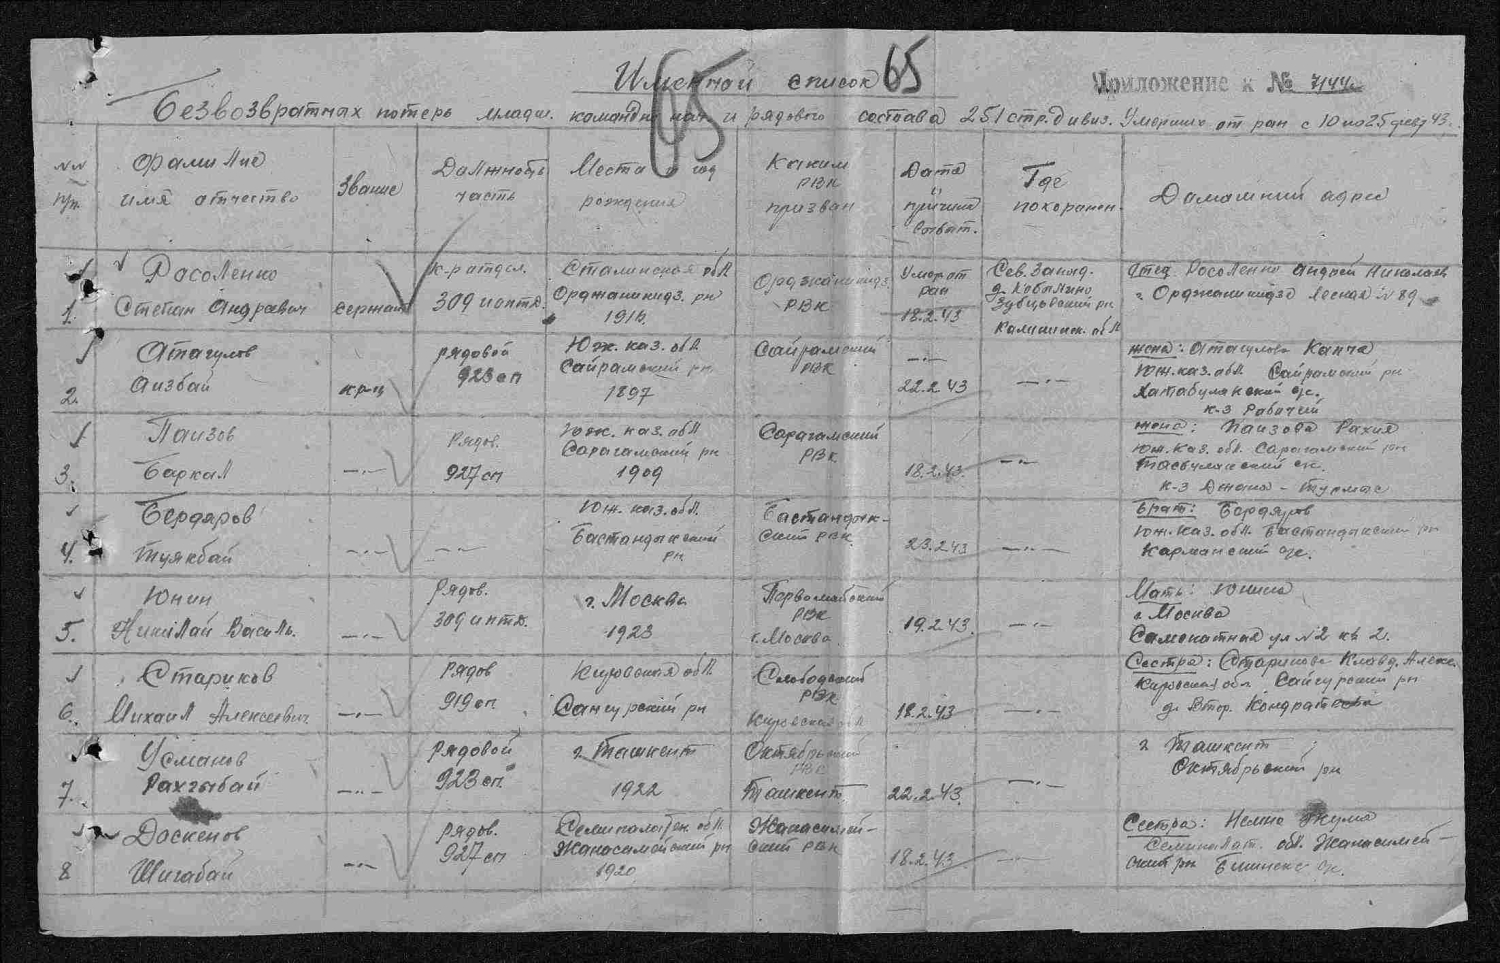 Именной список
65
65
Приложение к № 7144с
Безвозвратных потерь младш. команд. нач. и рядового состава 251 стр. дивиз. Умерших от ран с 10 по 25 февр 43.
№№ п/п
Фамилие имя отчество
Звание
Должность часть
Место и год рождения
Каким РВК призван
Дата и причина выбыт.
Где похоронен
Дамашний адрес
1.
Росоленко
Степан Андреевич
сержант
к-р отдел.
309 иптд.
Сталинская обл
Орджаникидз. рн
1916.
Орджаникидз.
РВК
Умер от
ран
18.2.43
Сев. Запад.
д. Кобылино
Зубцовский рн
Калининск. обл
Отец Росоленко Андрей Николаев
г. Орджаникидзе Лесная № 89
2.
Атагулов
Аизбай
кр-ц
рядовой
923 сп
Юж. каз. обл.
Сайрамский рн
1897
Сайрамский
РВК
—·—
22.2.43
—·—
жена: Атагулова Канча
Юж. каз. обл. Сайрамский рн
к-з Рабочий
3.
Паизов
Баркал
—·—
Рядов.
927 сп
Юж. каз. обл.
Сарагамский рн
1909
Сарагамский
РВК
18.2.43.
—·—
жена: Паизова Рахия
Юж. каз. обл. Сарагамский рн
4.
Бердяров
Туякбай
—·—
—·—
Юж. каз. обл.
Бастандыкский
рн
Бастандык-
ский РВК.
23.2.43
—·—
Брат: Бердяров
Юж. каз. обл. Бастандыкский рн
Карманский с/с.
5.
Юнин
Николай Василь.
—·—
Рядов.
309 иптд.
г. Москва
1923
Первомайский
РВК
г. Москва
19.2.43.
—·—
Мать: Юнина
г. Москва
Самокатная ул № 2 кв 2.
6.
Стариков
Михаил Алексеевич
—·—
Рядов
919 сп
Кировская обл
Сансурский рн
Слободский
РВК
Кировская обл
18.2.43
—·—
Сестра: Старикова Клавд. Алекс.
Кировская обл Сансурский рн
д. Втор. Кондратьево
7.
Усманов
Рахтыбай
—·—
Рядовой
923 сп
г. Ташкент
1922
Октябрьский
РВК
Ташкент.
22.2.43.
—·—
г. Ташкент
Октябрьский рн
8
Доскенов
Шигабай
—·—
Рядов.
927 сп
Семипалатен. обл.
Жанасимейский рн
1920
Жанасимей-
ский РВК
18.2.43
—·—
Сестра:
Семипалат. обл. Жанасимей-
ский рн